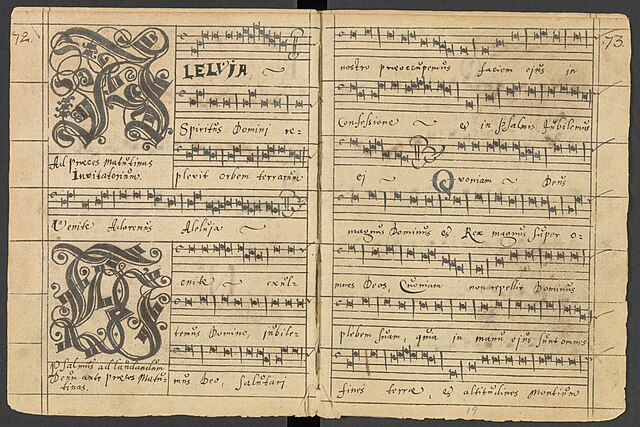 72.
A
LELVJA ~
Spiritus Domini re-
Ad præces matutinas
Invitatorium
plevit orbem terrarum
Venite Adoremus Aleluja ~
V
enite ~ exul-
temus Domino, jubile-
Psalmus ad laudandum
Deum ante præces Matu-
tinas.
mus Deo, salutari
73
nostro præoccupemus faciem ejus in
Confessione ~ & in Psalmis Jubilemus
ei ~ Quoniam ~ Deus
magnus Dominus & Rex magnus super o-
mnes Deos, Quoniam non repellit Dominus
plebem suam, quia in manu ejus sunt omnes
fines terræ, & altitudines montium